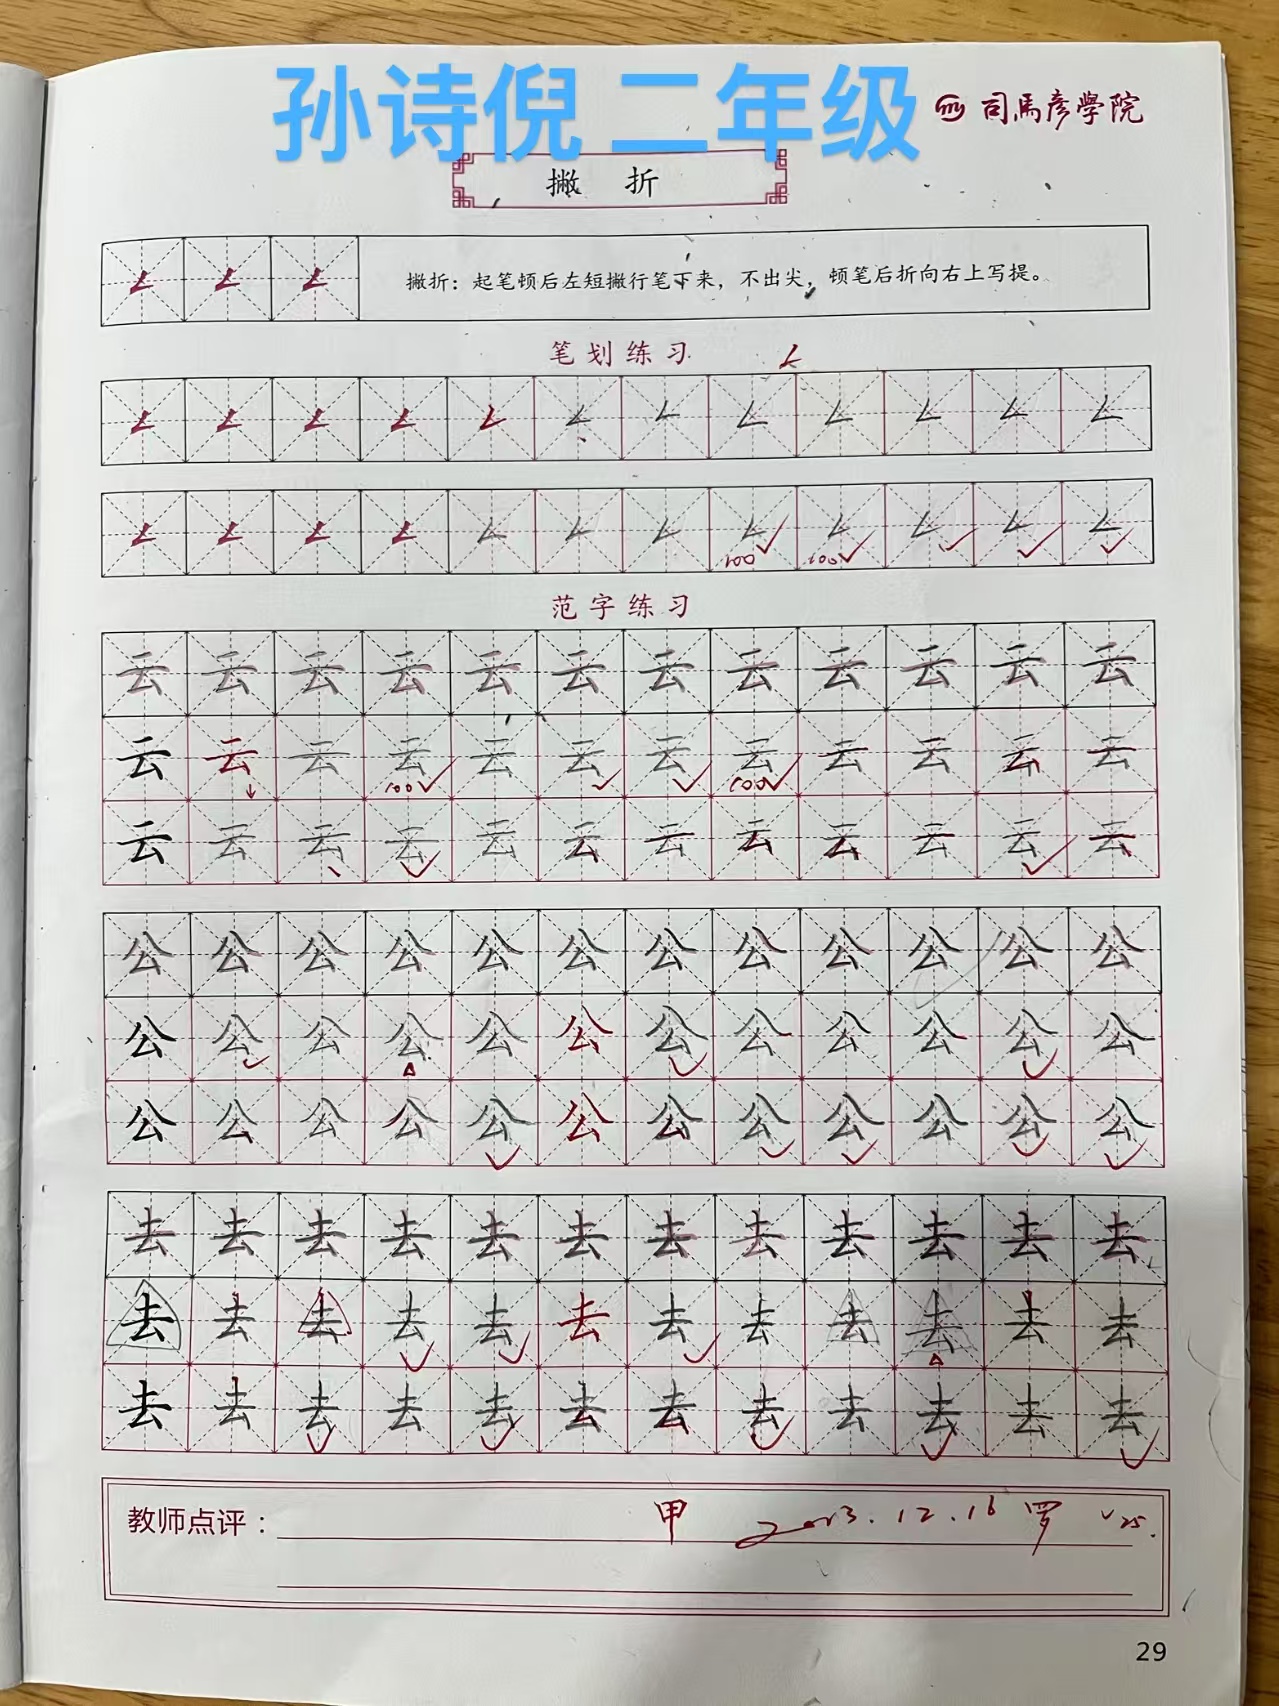 孙诗倪 二年级
司馬彦學院
撇 折
撇折：起笔顿后左短撇行笔下来，不出尖，顿笔后折向右上写提。
笔划练习
100 100
范字练习
云 云 云 云 云 云 云 云 云 云 云 云
云 云 云 云 云 云 云 云 云 云 云 云
100 100
云 云 云 云 云 云 云 云 云 云 云 云
公 公 公 公 公 公 公 公 公 公 公 公
公 公 公 公 公 公 公 公 公 公 公 公
公 公 公 公 公 公 公 公 公 公 公 公
去 去 去 去 去 去 去 去 去 去 去 去
去 去 去 去 去 去 去 去 去 去 去 去
去 去 去 去 去 去 去 去 去 去 去 去
教师点评： 甲 2023.12.16 罗
29